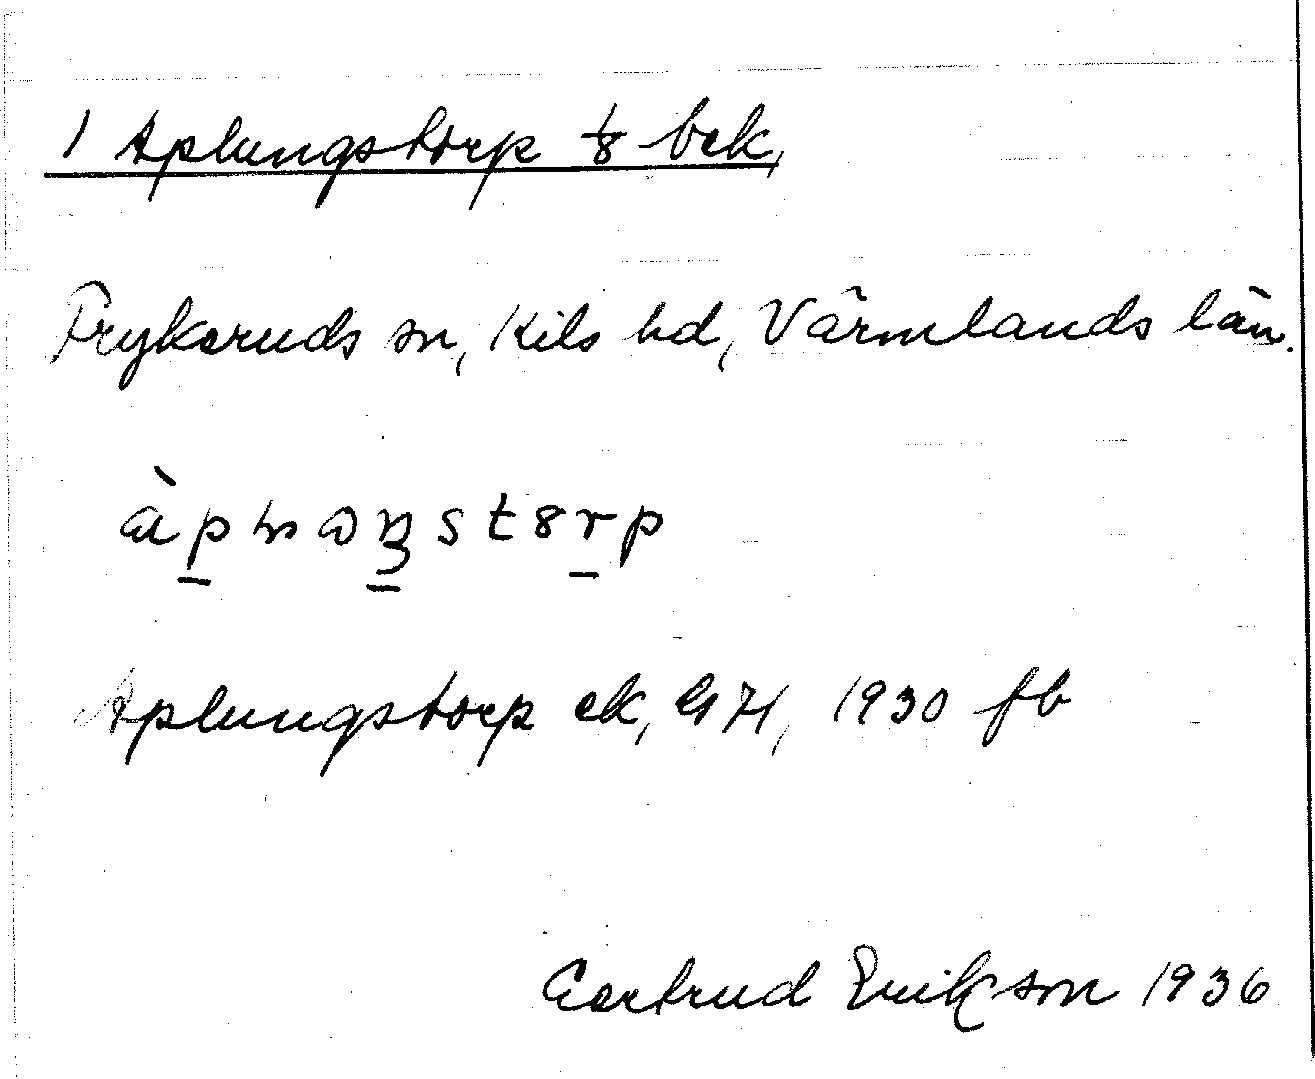 1 Aplungstorp 1/8 bek,
Frykeruds sn, Kils hd, Värmlands län.
Aplungstorp ek, GH, 1930 fb
Gertrud Erikson 1936